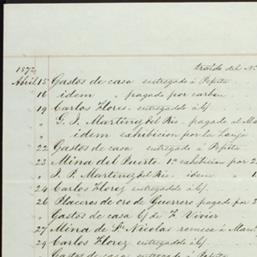 traido del N
1872
Abril 15 Gastos de casa entregado á Pepita
" 16 idem " pagado por carbon
" 19 Carlos Florez entregado á
G. I. Martinez del Rio pagado al
" idem exhibicion por la Zanja
" 22 Gastos de casa entregado á Pepita
" 23 Mina del Puerto 1ª exhibicion por 2
" " J. P. Martinez del Rio idem " 1
" 24 Carlos Florez entregado á
" 26 Placeres de oro de Guerrero pagado por 2
" " Gastos de casa de F. Vivier
" 27 Mina de Sn Nicolas remesa á
" 29 Carlos Florez entregado
Gastos de casa entregado á Pepita